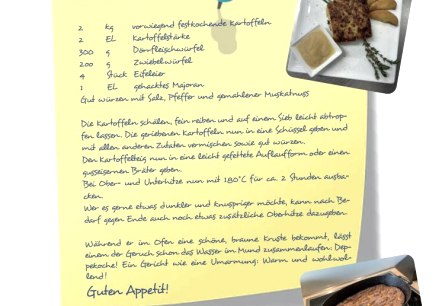 2 kg vorwiegend festkochende Kartoffeln
2 EL Kartoffelstärke
300 g Dörrfleischwürfel
200 g Zwiebelwürfel
4 Stück Eifeleier
1 EL gehacktes Majoran
Gut würzen mit Salz, Pfeffer und gemahlener Muskatnuss
Die Kartoffeln schälen, fein reiben und auf einem Sieb leicht abtrop-
fen lassen. Die geriebenen Kartoffeln nun in eine Schüssel geben und
mit allen anderen Zutaten vermischen sowie gut würzen.
Den Kartoffelteig nun in eine leicht gefettete Auflaufform oder einen
gusseisernen Bräter geben.
Bei Ober- und Unterhitze nun mit 180°C für ca. 2 Stunden ausba-
cken.
Wer es gerne etwas dunkler und knuspriger möchte, kann nach Be-
darf gegen Ende auch noch etwas zusätzliche Oberhitze dazugeben.
Während er im Ofen eine schöne, braune Kruste bekommt, lässt
einem der Geruch schon das Wasser im Mund zusammenlaufen: Dep-
pekoche! Ein Gericht wie eine Umarmung: Warm und wohlwol-
lend!
Guten Appetit!